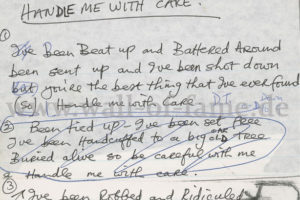 HANDLE ME WITH CARE.
① I've been Beat up and Battered Around
been sent up and I've been shot down
but you're the best thing that I've ever found
(so) Handle me with care
② Been tied up - I've been set free
I've been Handcuffed to a big old oak tree
Buried alive so be careful with me
& Handle me with care.
③ I've been Robbed and Ridiculed